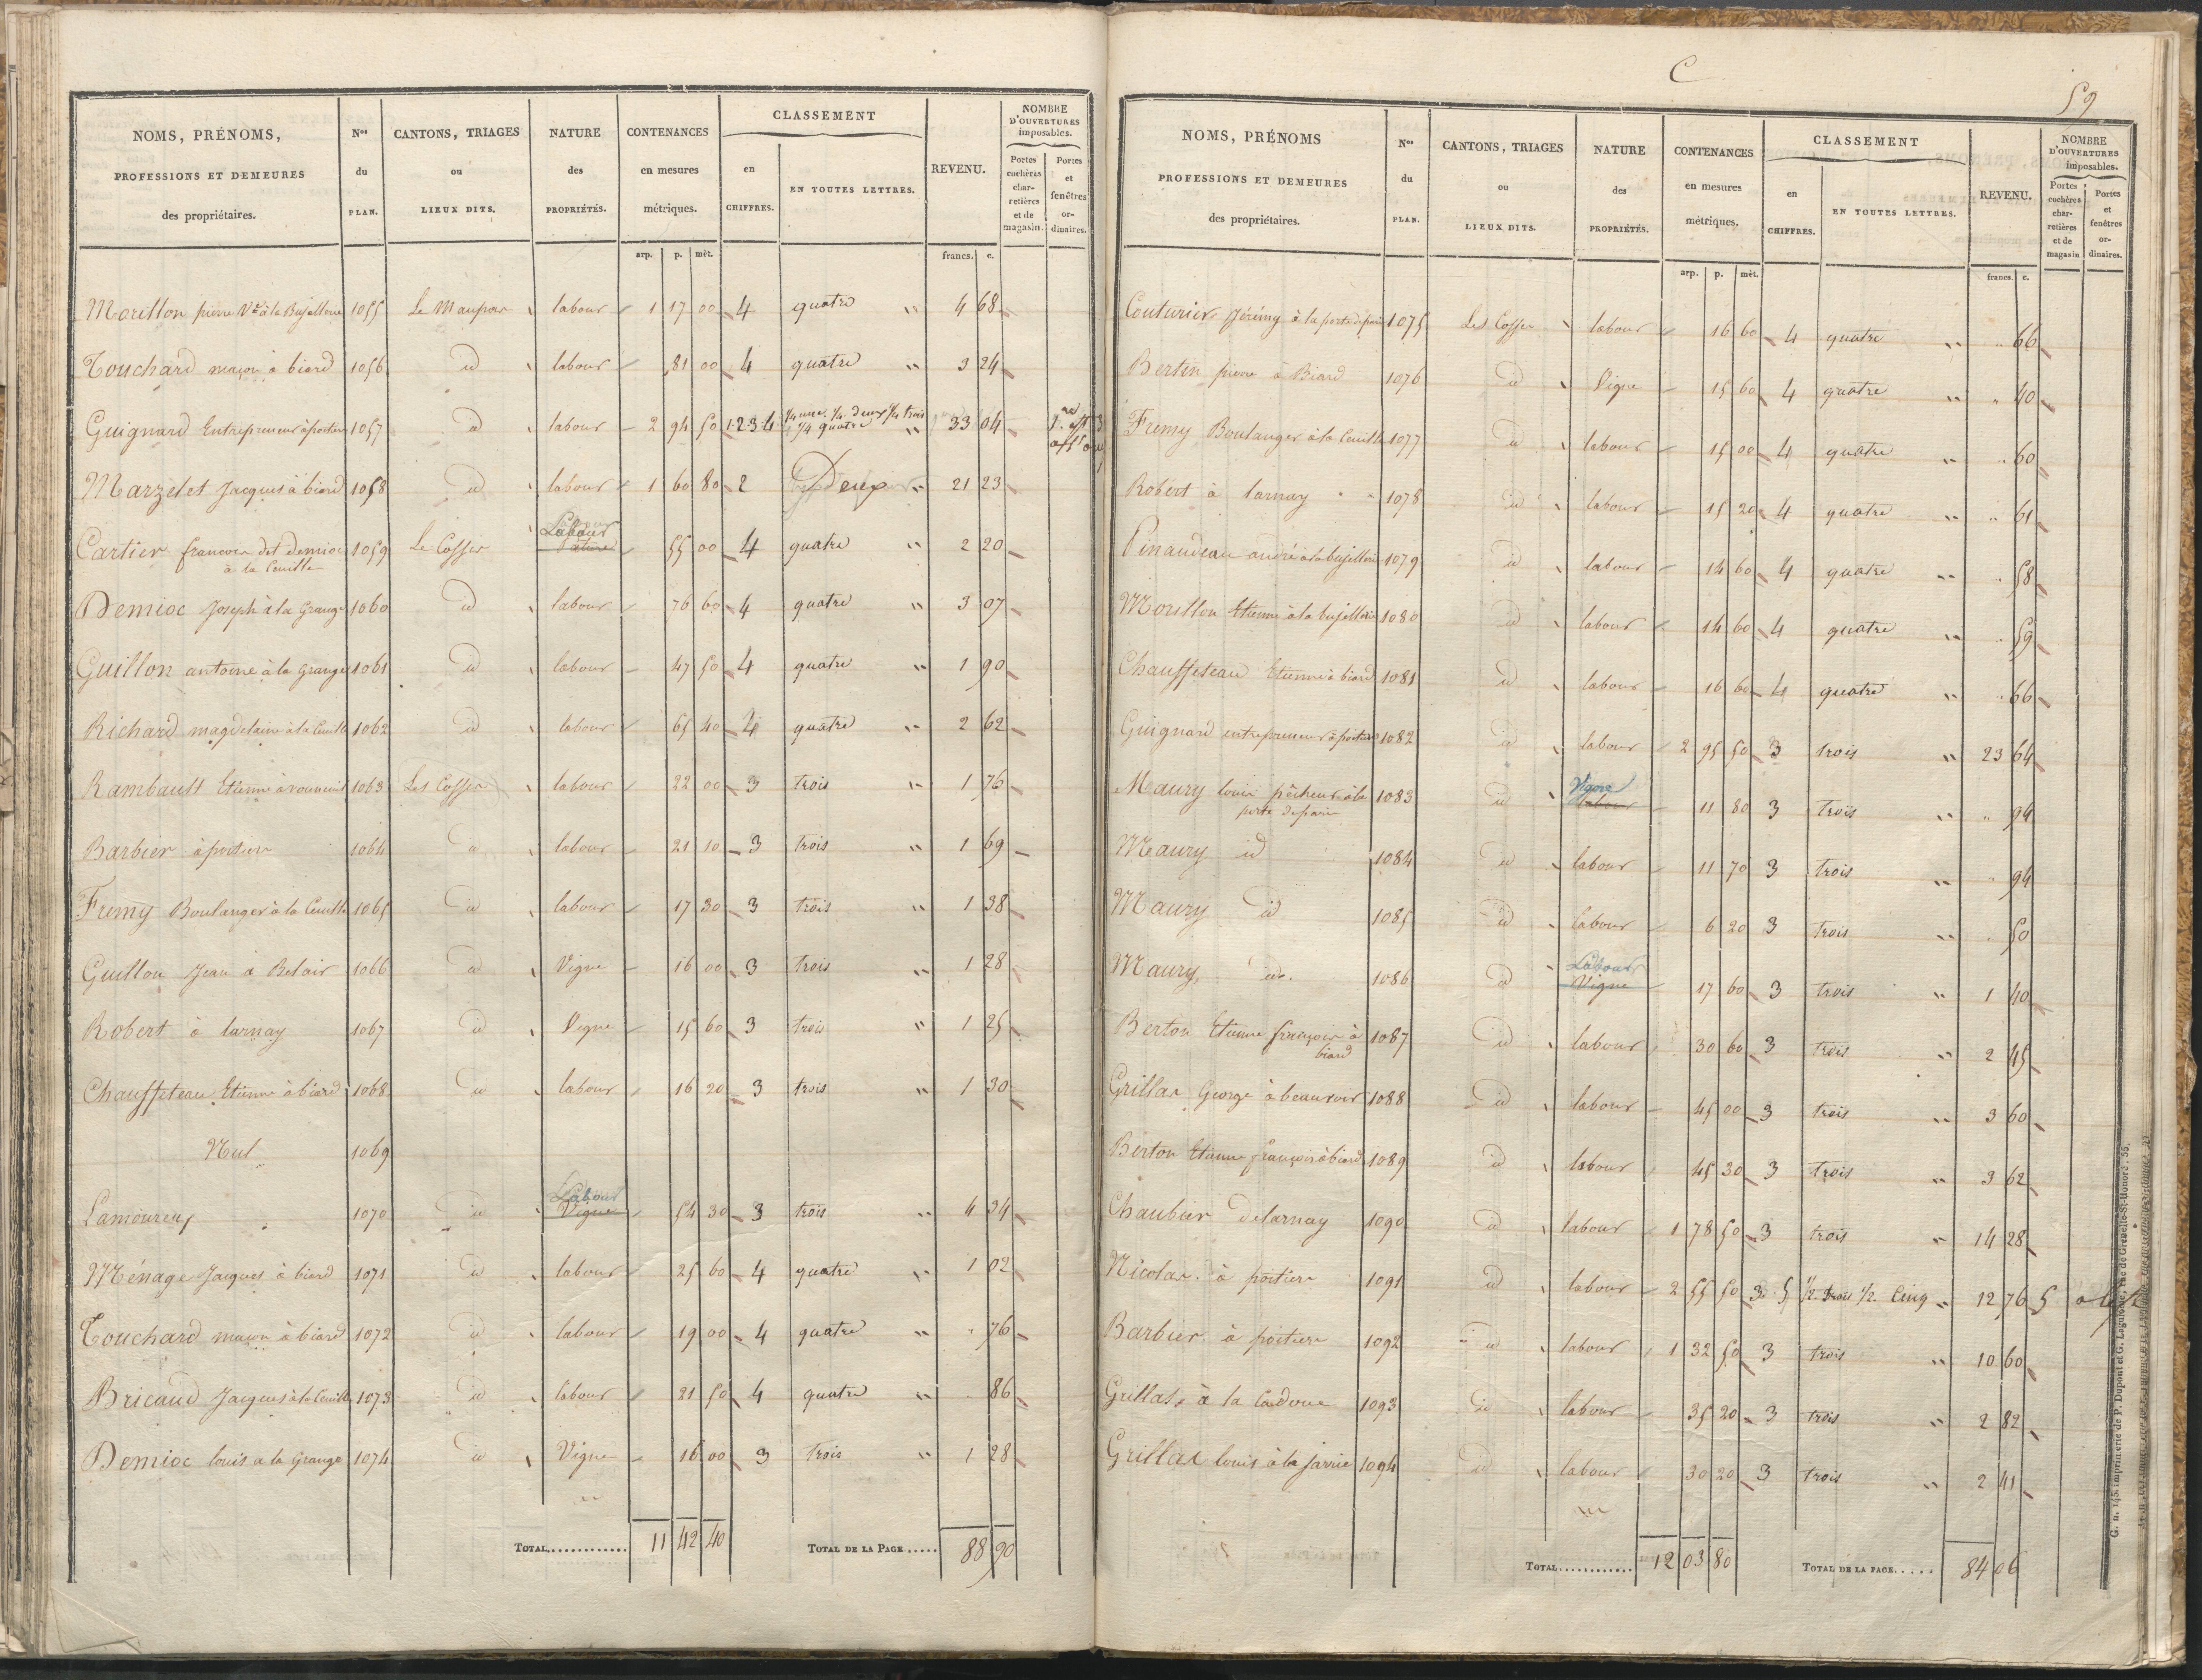 NOMS, PRÉNOMS, PROFESSIONS ET DEMEURES des propriétaires. | Nos du PLAN. | CANTONS, TRIAGES ou LIEUX DITS. | NATURE des PROPRIÉTÉS. | CONTENANCES en mesures métriques. | CLASSEMENT en CHIFFRES. | EN TOUTES LETTRES. | REVENU. | NOMBRE D'OUVERTURES imposables. Portes cochères charretières et de magasin. | Portes et fenêtres ordinaires.
arp. p. mèt. francs. c.
Morillon pierre Ve à la Bujellerie 1055 Le Maupas labour 1 17 00 4 quatre " 4 68
Touchard maçon à biard 1056 id labour 81 00 4 quatre " 3 24
Guignard Entrepreneur à poitiers 1057 id labour 2 94 50 1.2.3.4. 1/4 une. 1/4 deux 1/4 trois 1/4 quatre " 33 04
Marzelet Jacques à biard 1058 id labour 1 60 80 2 Deux " 21 23
Cartier francois dit demioc à la Cueille 1059 Le Cosses Labour 55 00 4 quatre " 2 20
Demioc Joseph à la Grange 1060 id labour 76 60 4 quatre " 3 07
Guillon antoine à la Grange 1061 id labour 47 50 4 quatre " 1 90
Richard magdelaine à la Cueille 1062 id labour 65 40 4 quatre " 2 62
Rambault Etienne à 1063 Les Cosses labour 22 00 3 trois " 1 76
Barbier à poitiers 1064 id labour 21 10 3 trois " 1 69
Fremy Boulanger à la Cueille 1065 id labour 17 30 3 trois " 1 38
Guillon Jean à Belair 1066 id Vigne 16 00 3 trois " 1 28
Robert à larnay 1067 id Vigne 15 60 3 trois " 1 25
Chauffeteau Etienne à biard 1068 id labour 16 20 3 trois " 1 30
Nul 1069
Lamoureux 1070 id Labour Vigne 54 30 3 trois " 4 34
Ménage Jacques à biard 1071 id labour 25 60 4 quatre " 1 02
Touchard maçon à biard 1072 id labour 19 00 4 quatre " " 76
Bricaud Jacques à la Cueille 1073 id labour 21 50 4 quatre " " 86
Demioc louis a la Grange 1074 id Vigne 16 00 3 trois " 1 28
TOTAL............ 11 42 40 TOTAL DE LA PAGE...... 88 90
C
59
NOMS, PRÉNOMS PROFESSIONS ET DEMEURES des propriétaires. | Nos du PLAN. | CANTONS, TRIAGES ou LIEUX DITS. | NATURE des PROPRIÉTÉS. | CONTENANCES en mesures métriques. | CLASSEMENT en CHIFFRES. | EN TOUTES LETTRES. | REVENU. | NOMBRE D'OUVERTURES imposables. Portes cochères charretières et de magasin | Portes et fenêtres ordinaires.
arp. p. mèt. francs. c.
Couturier Jérémy à la porte de paris 1075 Les Cosses labour 16 60 4 quatre " " 66
Bertin pierre à Biard 1076 id Vigne 15 60 4 quatre " " 40
Fremy Boulanger à la Cueille 1077 id labour 15 00 4 quatre " " 60
Robert à larnay 1078 id labour 15 20 4 quatre " " 61
Pinaudeau andré à la bujellerie 1079 id labour 14 60 4 quatre " " 58
Morillon Etienne à la bujellerie 1080 id labour 14 60 4 quatre " " 59
Chauffeteau Etienne à biard 1081 id labour 16 60 4 quatre " " 66
Guignard entrepreneur à poitiers 1082 id labour 2 95 50 3 trois " 23 64
Maury louis pêcheur à la porte de paris 1083 id Vigne labour 11 80 3 trois " " 94
Maury id 1084 id labour 11 70 3 trois " " 94
Maury id 1085 id labour 6 20 3 trois " " 50
Maury id. 1086 id Labour Vigne 17 60 3 trois " 1 40
Berton Etienne françois à biard 1087 id labour 30 60 3 trois " 2 45
Grillas George à beauvoir 1088 id labour 45 00 3 trois " 3 60
Berton Etienne françois à biard 1089 id labour 45 30 3 trois " 3 62
Chaubier delarnay 1090 id labour 1 78 50 3 trois " 14 28
Nicolas à poitiers 1091 id labour 2 55 50 3. 5 1/2 trois 1/2. Cinq " 12 76
Barbier à poitiers 1092 id labour 1 32 50 3 trois " 10 60
Grillas à la Cadoue 1093 id labour 35 20 3 trois " 2 82
Grillas louis à la Jarrie 1094 id labour 30 20 3 trois " 2 41
TOTAL............ 12 03 80 TOTAL DE LA PAGE..... 84 06
G. n. 145. Imprimerie de P. Dupont et G. Laguionie, rue de Grenelle-St-Honoré, 55.